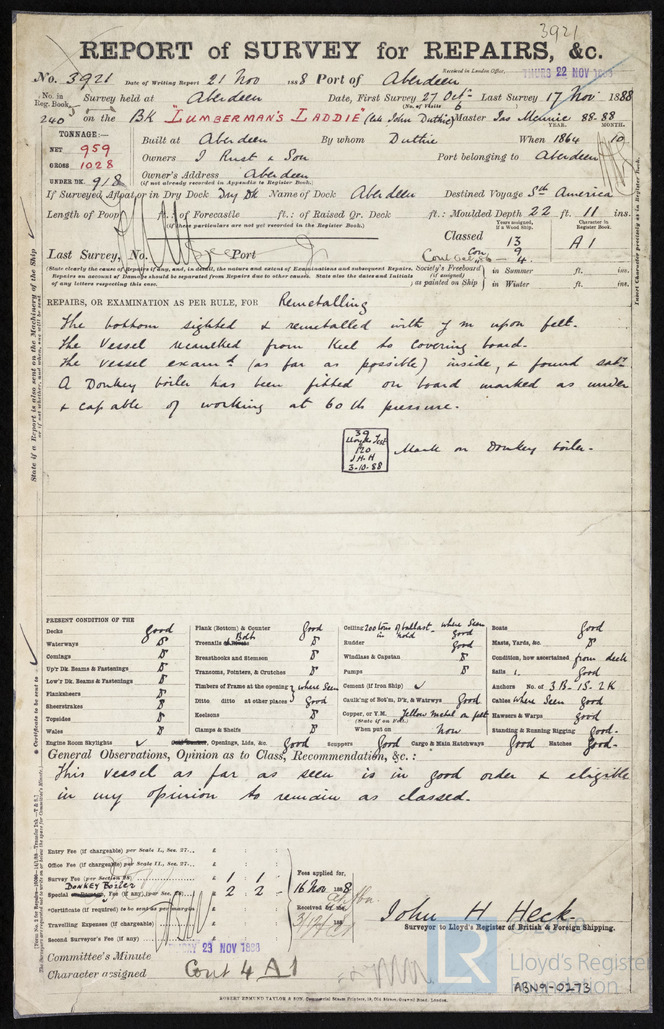 3921
REPORT of SURVEY for REPAIRS, &c.
No. 3921 Date of Writing Report 21 Nov 1888 Port of Aberdeen Received in London Office, THURS 22 NOV 1888
No. in Reg. Book. Survey held at Aberdeen Date, First Survey 27 Oct Last Survey 17 Nov 1888
(No. of Visits 6
240 on the Bk "LUMBERMAN'S LADDIE" (late John Duthie) Master Jas 88.88
TONNAGE:— YEAR. MONTH.
NET 959 Built at Aberdeen By whom Duthie When 1864 10
GROSS 1028 Owners J Rust & Son Port belonging to Aberdeen
UNDER DK. 918 Owner's Address Aberdeen
(if not already recorded in Appendix to Register Book.)
If Surveyed Afloat or in Dry Dock Dry Dk Name of Dock Aberdeen Destined Voyage Sth America
Length of Poop ft.: of Forecastle ft.: of Raised Qr. Deck ft.: Moulded Depth 22 ft. 11 ins.
(if these particulars are not yet recorded in the Register Book.)
Years assigned, if a Wood Ship. Character in Register Book.
Classed 13 A1
Con. 9
Cont 4
Last Survey, No. Port
(State clearly the cause of Repairs if any, and, in detail, the nature and extent of Examinations and subsequent Repairs.
Repairs on account of Damage should be separated from Repairs due to other causes. State also the Dates and Initials
of any letters respecting this case.
Society's Freeboard (if assigned) as painted on Ship
in Summer ft. ins.
in Winter ft. ins.
REPAIRS, OR EXAMINATION AS PER RULE, FOR Remetalling
The bottom sighted & remetalled with y m upon felt.
The vessel recaulked from Keel to covering board.
The vessel examd (as far as possible) inside, & found saty.
A Donkey boiler has been fitted on board marked as under
& capable of working at 60 lb pressure.
39
Lloyds Test
120
J.H.H
3-10-88
Mark on Donkey boiler.
PRESENT CONDITION OF THE
Decks good
Waterways
Comings
Up'r Dk. Beams & Fastenings
Low'r Dk. Beams & Fastenings
Planksheers
Sheerstrakes
Topsides
Wales
Engine Room Skylights
Plank (Bottom) & Counter Good
Treenails Both
Breasthooks and Stemson
Transoms, Pointers, & Crutches
Timbers of Frame at the opening where Seen
Ditto ditto at other places Good
Keelsons
Clamps & Shelfs
Openings, Lids, &c. Good Scuppers Good
Ceiling 200 tons of ballast in hold where Seen good
Rudder Good
Windlass & Capstan
Pumps
Cement (if Iron Ship)
Caulk'ng of Bot'm, D'k, & Watrwys Good
Copper, or Y.M. Yellow metal on felt
(State if on Felt.)
When put on Now
Cargo & Main Hatchways Good Hatches Good
Boats good
Masts, Yards, &c.
Condition, how ascertained from deck
Sails Good
Anchors No. of 3B. 1S. 2K
Cables where Seen Good
Hawsers & Warps Good
Standing & Running Rigging Good
General Observations, Opinion as to Class, Recommendation, &c.:
This vessel as far as seen is in good order & eligible
in my opinion to remain as classed.
Entry Fee (if chargeable) per Scale I., Sec. 27... £ : :
Office Fee (if chargeable) per Scale II., Sec. 27... £ : :
Survey Fee (per Section 28) £ 1 : 1 : -
Donkey Boiler
Special Fee (if any) (per Sec. 28) £ 2 : 2 : -
*Certificate (if required) to be sent as per margin
Travelling Expenses (if chargeable) £ : :
Second Surveyor's Fee (if any) £ : :
Fees applied for,
16 Nov 1888
Received by me,
3/12/ 188
John H Heck.
Surveyor to Lloyd's Register of British & Foreign Shipping.
Committee's Minute FRIDAY 23 NOV 1888
Character assigned Cont 4 A1
ROBERT EDMUND TAYLOR & SON, Commercial Steam Printers, 19, Old Street, Goswell Road, London.
LR
Lloyd's Register
Foundation
ABN9-0273